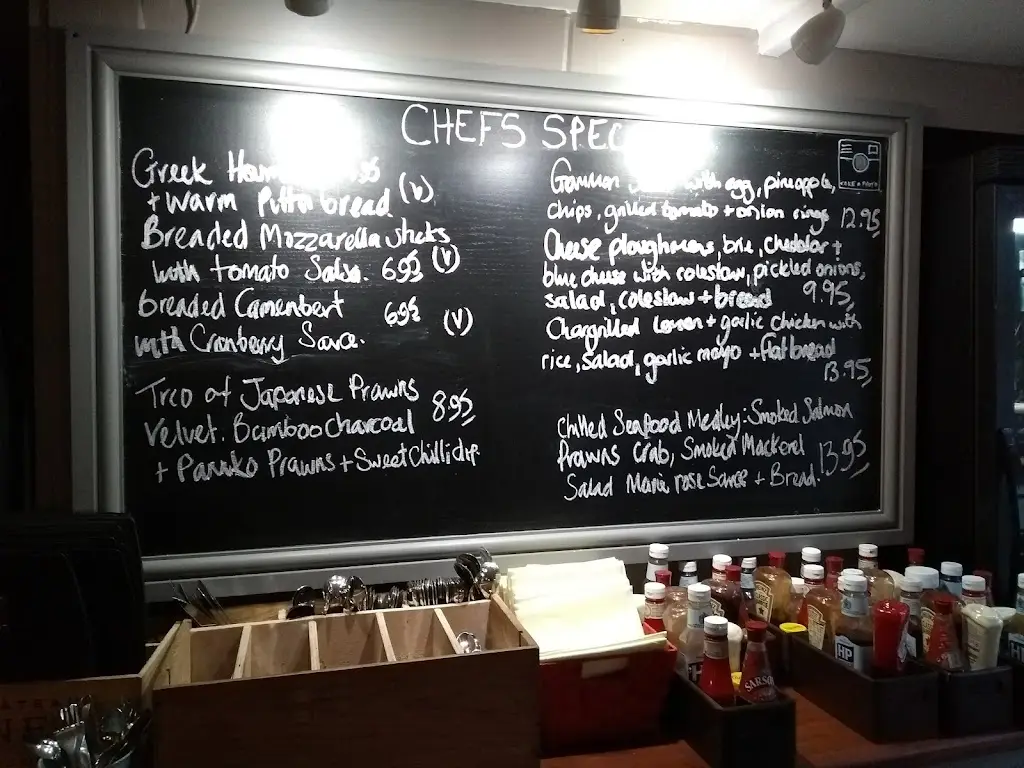 CHEFS SPEC
Greek
+ warm Pitta bread (v)
Breaded Mozzarella sticks
with tomato Salsa. 6.95 (v)
breaded Camembert 6.95
with Cranberry Sauce. (v)
Trio of Japanese Prawns
Velvet. Bamboo charcoal 8.95
+ Panko Prawns + Sweet Chilli dip.
Gammon with egg, pineapple,
chips, grilled tomato + onion rings 12.95
Cheese ploughmans, brie, cheddar +
blue cheese with coleslaw, pickled onions,
salad, coleslaw + bread 9.95
Chargrilled lemon + garlic chicken with
rice, salad, garlic mayo + flatbread
13.95
Chilled Seafood Medley: Smoked Salmon
Prawns Crab, Smoked Mackerel 13.95
Salad Marie rose Sauce + Bread.
HP
SARSON'S